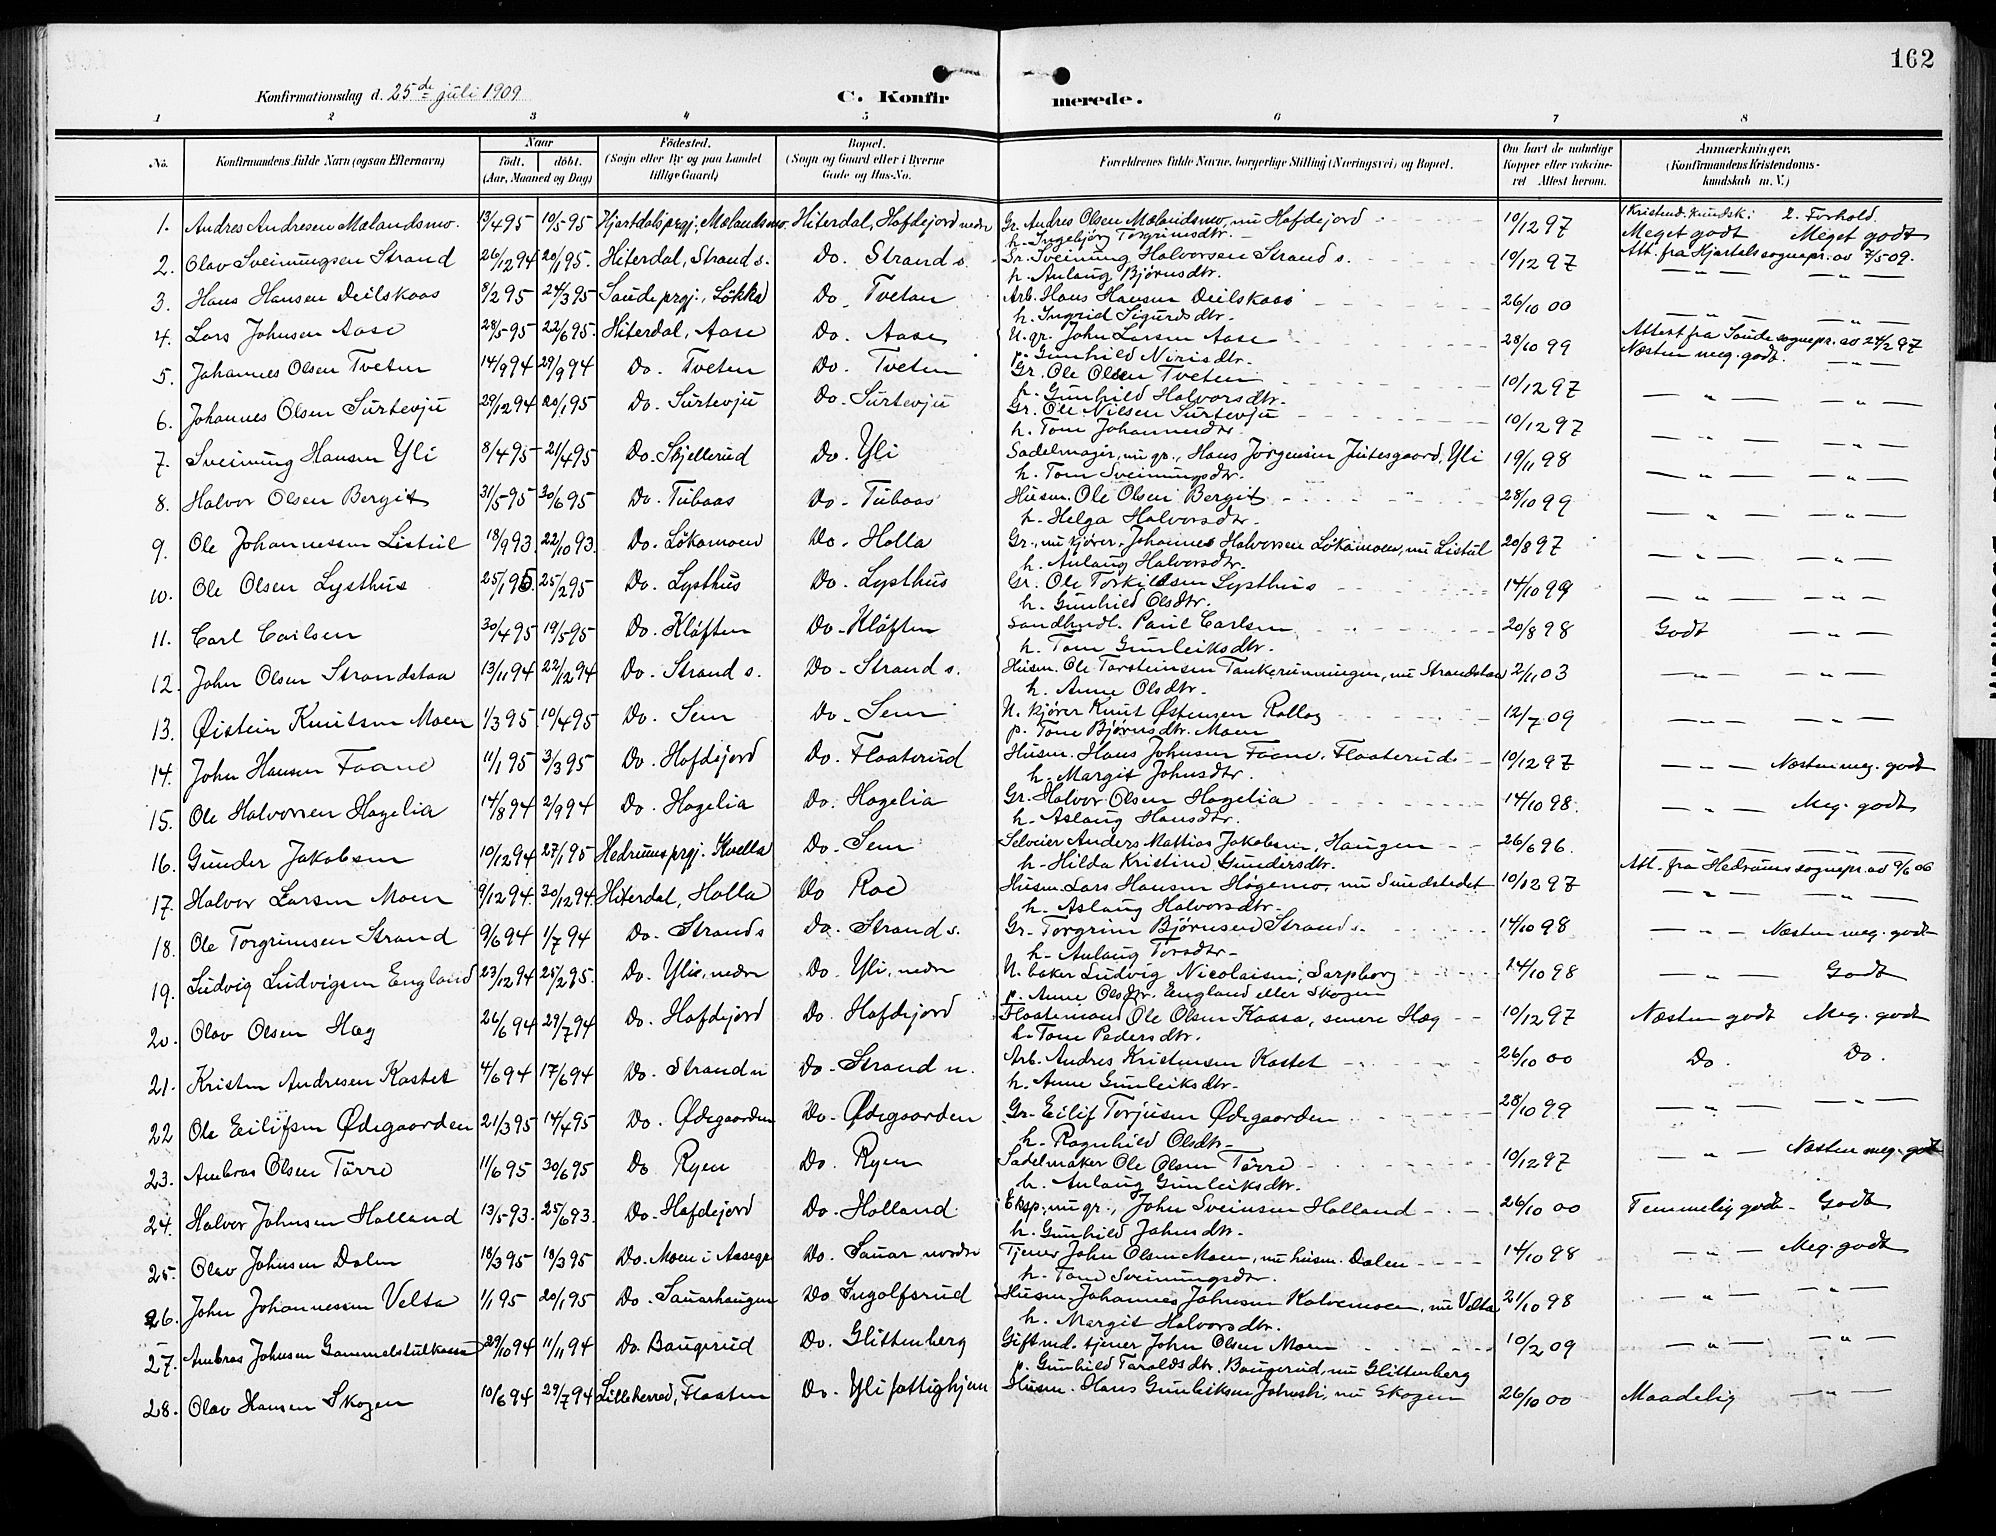 162
Konfirmationsdag d. 25de juli 1909
C. Konfirmerede.
1 2 3 4 5 6 7 8
No.
Konfirmandens fulde Navn (ogsaa Efternavn)
Naar
født. døbt.
(Aar, Maaned og Dag)
Fødested.
(Sogn eller By og paa Landet
tillige Gaard)
Bopæl.
(Sogn og Gaard eller i Byerne
Gade og Hus-No.
Forældrenes fulde Navne, borgerlige Stilling (Næringsvei) og Bopæl.
Om havt de naturlige
Kopper eller vakcine-
ret Attest herom.
Anmærkninger.
(Konfirmandens Kristendoms-
kundskab m.V.)
1. Andres Andresen Mælandsmo. 13/4 95 10/5 95 Hjartdals prgj., Mælandsmo. Hiterdal, Hafdejord nedre Gr. Andres Olsen Mælandsmo, nu Hafdejord 10/12 97 1 Kristend. kundsk: 2. Forhold.
h. Ingebjørg Torgrimsdtr. Meget godt Meget godt
2. Olav Sveinungsen Strand 26/12 94 20/1 95. Hiterdal, Strand s. Do. Strand s. Gr. Sveinung Halvorsen Strand s. 10/12 97 Att. fra Hjartdals sognepr. av 7/5 09.
h. Anlaug Bjørnsdtr. — " — — " —
3. Hans Hansen Deilskaas 8/2 95 24/3 95 Saude prgj., Løkka Do. Tveten Arb. Hans Hansen Deilskaas 26/10 00
h. Ingrid Sigurdsdtr. — " — — " —
4. Lars Johnsen Aase 28/5 95 22/6 95. Hiterdal, Aase Do. Aase U. gr. John Larsen Aase 28/10 99 Attest fra Saude sognepr. av 24/2 97
p. Gunhild Nirisdtr. Næsten meg. godt. — " —
5. Johannes Olsen Tveten 14/9 94 29/9 94 Do. Tveten Do. Tveten Gr. Ole Olsen Tveten 10/12 97
h. Gunhild Halvorsdtr. — " — — " —
6. Johannes Olsen Surtevju 29/12 94 20/1 95 Do. Surtevju Do. Surtevju Gr. Ole Nilsen Surtevju 10/12 97
h. Tone Johannesdtr. — " — — " —
7. Sveinung Hansen Yli 8/4 95 21/4 95 Do. Skjellerud Do. Yli Sadelmager, nu gr., Hans Jørgensen Jutesgaard, Yli 19/11 98
h. Tone Sveinungsdtr. — " — — " —
8. Halvor Olsen Bergit 31/5 95 30/6 95 Do. Tubaas Do. Tubaas Husm. Ole Olsen Bergit 28/10 99
h. Helga Halvorsdtr. — " — — " —
9. Ole Johannessen Listul 18/9 93. 22/10 93. Do. Løkamoen Do. Holla Gr., nu kjører, Johannes Halvorsen Løkamoen, nu Listul 20/8 97
h. Anlaug Halvorsdtr. — " — — " —
10. Ole Olsen Lysthus 25/1 95. 25/2 95 Do. Lysthus Do. Lysthus Gr. Ole Torkildsen Lysthus 14/10 99
h. Gunhild Olsdtr. — " — — " —
11. Carl Carlsen 30/4 95 19/5 95 Do. Kløften Do. Kløften Landhndl. Paul Carlsen 20/8 98 Godt — " —
h. Tone Gunleiksdtr.
12. John Olsen Strandstaa 13/11 94 22/12 94 Do. Strand s. Do. Strand s. Husm. Ole Torsteinsen Tankerunningen, nu Strandstaa 2/11 03 — " — — " —
h. Anne Olsdtr.
13. Øistein Knutsen Moen 1/3 95 10/4 95 Do. Sem Do. Sem U. kjører Knut Østensen Rollag 12/7 09 — " — — " —
p. Tone Bjørnsdtr. Moen
14. John Hansen Foane 11/1 95 3/3 95 Do. Hafdejord Do. Flaaterud Husm. Hans Johnsen Foane, Flaaterud 10/12 97 — " — Næsten meg. godt
h. Margit Johnsdtr.
15. Ole Halvorsen Hagelia 14/8 94 2/9 94 Do. Hagelia Do. Hagelia Gr. Halvor Olsen Hagelia 14/10 98. — " — Meg. godt
h. Aslaug Hansdtr.
16. Gunder Jakobsen 10/12 94 27/1 95 Hedrums prgj. Kvella Do. Sem Selveier Anders Mattias Jakobsen, Haugen 26/6 96.
h. Hilda Kristine Gundersdtr. Att. fra Hedrums sognepr. av 9/6 06
17. Halvor Larsen Moen 9/12 94. 30/12 94. Hiterdal, Holla Do Roe Husm. Lars Hansen Høgemo, nu Sundstedet 10/12 97 — " — — " —
h. Aslaug Halvorsdtr.
18. Ole Torgrimsen Strand 9/6 94 1/7 94 Do. Strand s Do. Strand s. Gr. Torgrim Bjørnsen Strand s. 14/10 98 — " — Næsten meg. godt
h. Anlaug Torsdtr.
19. Ludvig Ludvigsen England 23/12 94 25/2 95. Do. Yli, nedre Do. Yli, nedre U. baker Ludvig Nicolaisen, Sarpborg 24/10 98 — " — Godt
p. Anne Olsdtr. England eller Skogen
20. Olav Olsen Hæg 26/6 94 29/7 94 Do. Hafdejord Do. Hafdejord Flaatemand Ole Olsen Kassa, senere Hæg 10/12 97 Næsten godt Meg. godt
h. Tone Pedersdtr.
21. Kristen Andresen Kastet 4/6 94 17/6 94 Do. Strand n Do. Strand n. Arb. Andres Kristensen Kastet 26/10 00 Do. Do.
h. Anne Gunleiksdtr.
22 Ole Eilifsen Ødegaarden 21/3 95 14/4 95 Do. Ødegaarden Do. Ødegaarden Gr. Eilif Torjusen Ødegaarden 28/10 99 — " — — " —
h. Ragnhild Olsdtr.
23. Ambros Olsen Tørre 11/6 95 30/6 95 Do Ryen Do. Ryen Sadelmaker Ole Olsen Tørre 10/12 97 — " — Næsten meg. godt
h. Anlaug Gunleiksdtr.
24. Halvor Johnsen Holland 13/5 93. 25/6 93. Do. Hafdejord Do. Holland Eksp., nu gr., John Sveinsen Holland 26/10 00 Temmelig godt Godt
h. Gunhild Johnsdtr.
25. Olav Johnsen Dalen 18/3 95 18/3 95 Do. Moen i Aasegr Do. Sauar nordre Tjener John Olsen Moen, nu husm. Dalen 14/10 98 — " — Meg. godt
h. Tone Sveinungsdtr.
26. John Johannessen Velta 1/1 95 20/1 95 Do. Sauarhaugen Do Ingolfsrud Husm. Johannes Johnsen Kalvemoen, nu Velta 21/10 98 — " — — " —
h. Margit Halvorsdtr.
27. Ambros Johnsen Gammelstulkaasa 29/10 94 11/11 94 Do. Baugerud Do. Glittenberg Gift md. tjener John Olsen Moen 10/2 09 — " — — " —
p. Gunhild Taraldsdtr. Baugerud, nu Glittenberg
28. Olav Hansen Skogen 10/6 94 29/7 94 Lilleherred, Flaaten Do. Yli fattighjem Husm. Hans Gunleiksen Johusli, nu Skogen 26/10 00 Maadelig — " —